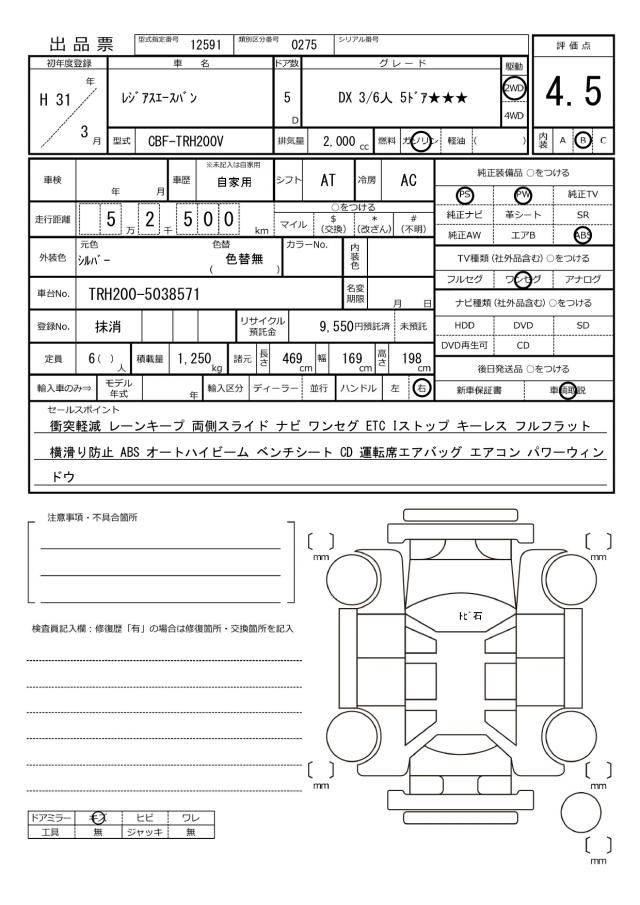 出品票 型式指定番号 12591 類別区分番号 0275 シリアル番号
評価点
4.5
内装 A B C
初年度登録 車名 ドア数 グレード 駆動
H 31 年 3 月 レジアスエースバン 5 D DX 3/6人 5ドア★★★ 2WD
4WD
型式 CBF-TRH200V 排気量 2,000 cc 燃料 ガソリン 軽油 ( )
車検 年 月 車歴 ※未記入は自家用 自家用 シフト AT 冷房 AC
走行距離 5 万 2 千 5 0 0 km ○をつける
マイル $(交換) *(改ざん) #(不明)
外装色 元色 シルバー 色替 ( 色替無 ) カラーNo. 内装色
車台No. TRH200-5038571 名変期限 月 日
登録No. 抹消 リサイクル預託金 9,550円預託済 未預託
定員 6( )人 積載量 1,250 kg 諸元 長さ 469 cm 幅 169 cm 高さ 198 cm
輸入車のみ⇒ モデル年式 年 輸入区分 ディーラー 並行 ハンドル 左 右
純正装備品 ○をつける
PS PW 純正TV
純正ナビ 革シート SR
純正AW エアB ABS
TV種類 (社外品含む) ○をつける
フルセグ ワンセグ アナログ
ナビ種類 (社外品含む) ○をつける
HDD DVD SD
DVD再生可 CD
後日発送品 ○をつける
新車保証書 車輌取説
セールスポイント
衝突軽減 レーンキープ 両側スライド ナビ ワンセグ ETC Iストップ キーレス フルフラット
横滑り防止 ABS オートハイビーム ベンチシート CD 運転席エアバッグ エアコン パワーウィン
ドウ
注意事項・不具合箇所
検査員記入欄：修復歴「有」の場合は修復箇所・交換箇所を記入
ドアミラー キズ ヒビ ワレ
工具 無 ジャッキ 無
[ ] mm
[ ] mm
トビ石
[ ] mm
[ ] mm
[ ] mm